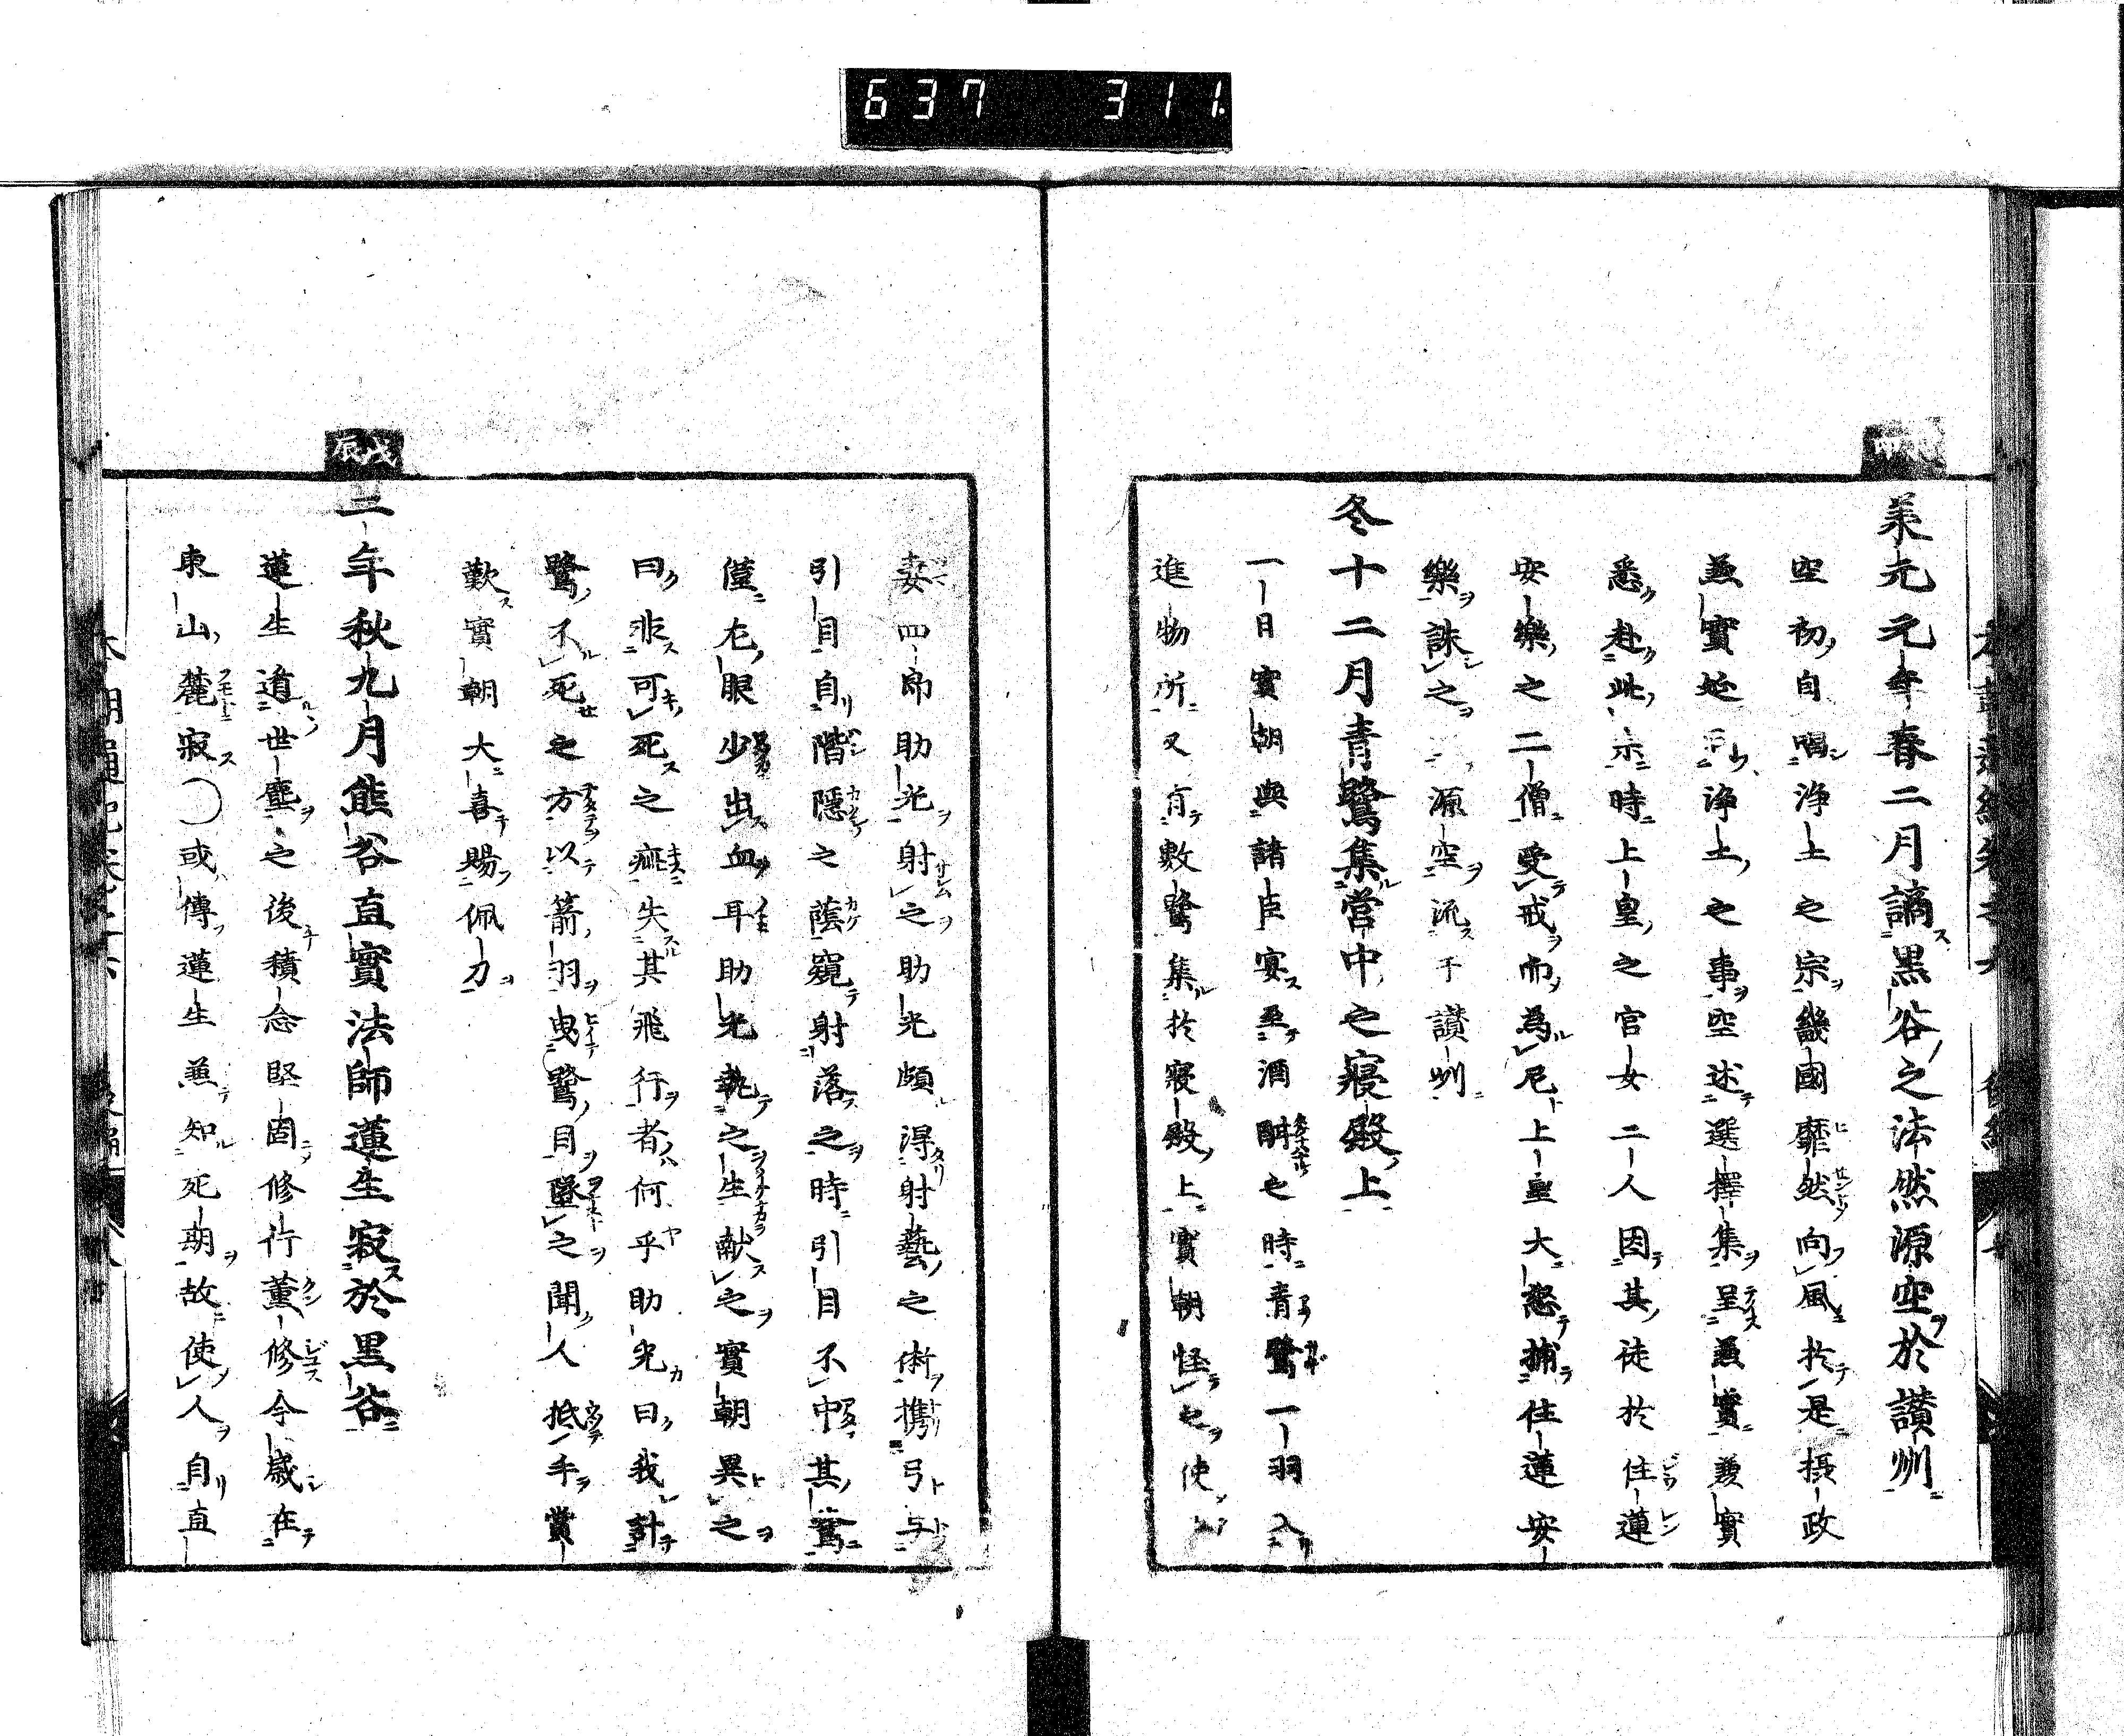 637 311
承元元年春二月謫黒谷之法然源空於讃州
空初自唱浄土之宗畿國靡然向風於是摂政
兼實・浄土之事空述選擇集呈兼實兼實
悉赴此・時上皇之官女二人因其徒於住蓮
安樂之二僧受戒而為尼上皇大怒捕住蓮安
樂誅之源空流于讃州
冬十二月青鷺集営中之寢殿上
一日實朝與諸臣宴至酒酣之時青鷺一羽入
進物所又有數鷺集於寢殿上實朝怪之使
妻四郎助光射之助光頗得射藝之術携弓与
引目自階隠之蔭窺射落之時引目不中其鷺
僅左眼少出血耳助光執之生献之實朝異之
曰非可死之疵失其飛行者何乎助光曰我計
鷺不死之方以箭羽曳鷺目墜之聞人抵手賞
歎實朝大喜賜佩刀
戊辰
二年秋九月熊谷直實法師蓮生寂於黒谷
蓮生遁世塵之後積念堅固修行薫修今歳在
東山麓寂〇或傳蓮生兼知死期故使人自直